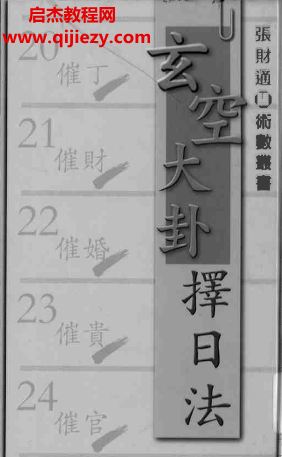 启杰教程网
www.qijiezy.com
20
催丁
21
催財
22
催婚
23
催貴
24
催官
玄空大卦
擇日法
張財適
術數叢書